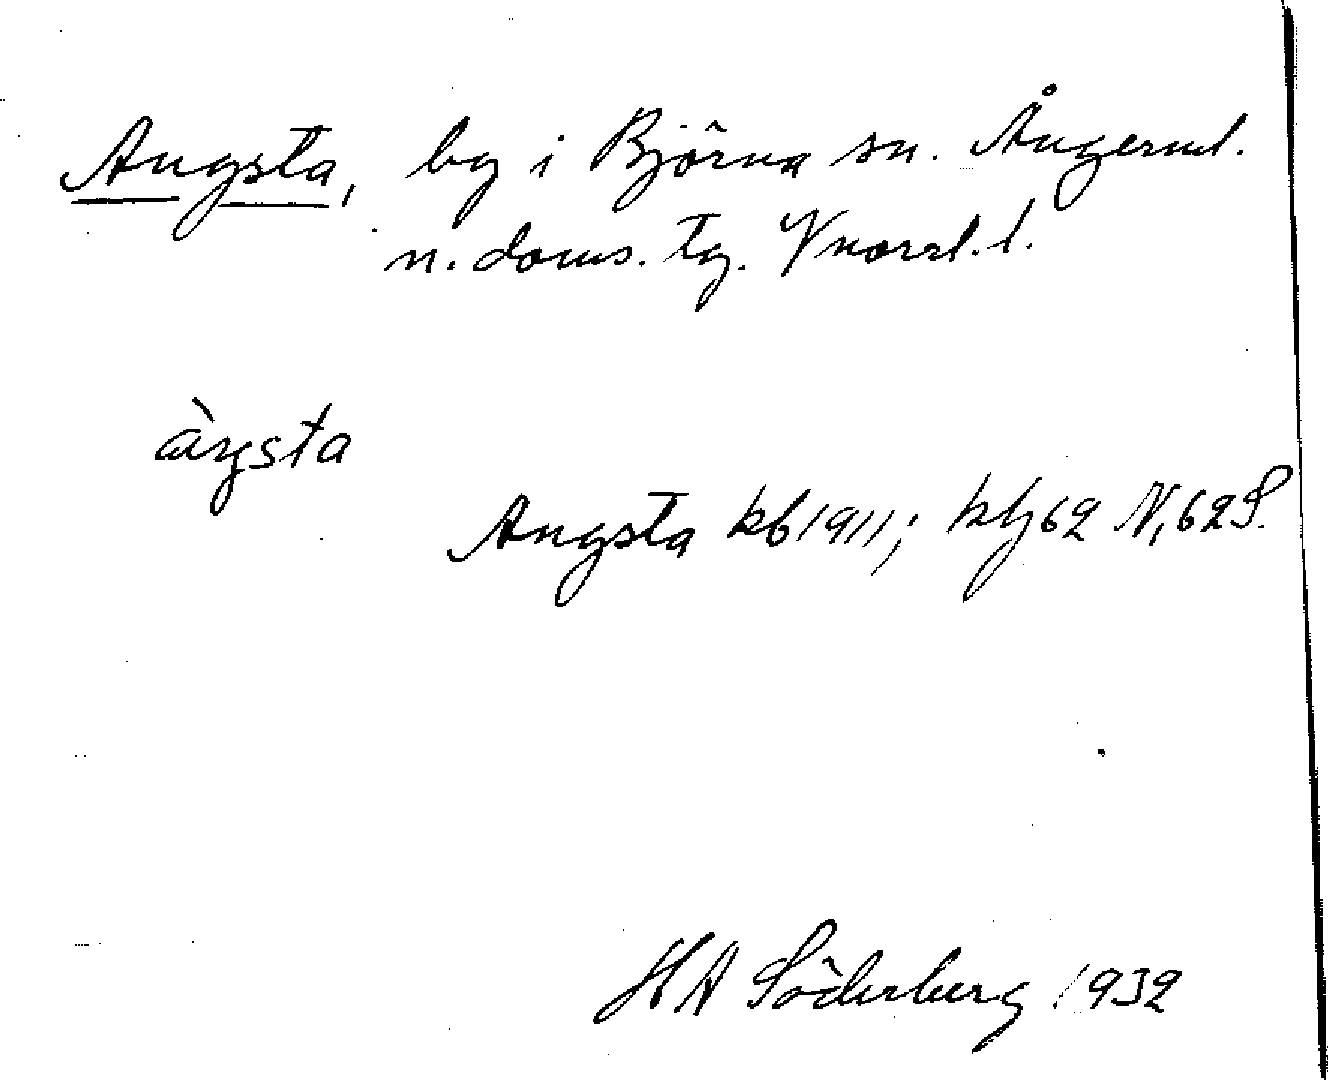 Angsta, by i Björna sn. Ångerml.
n. doms. tg. Vnorrl. l.
àŋsta
Angsta kb 1911; kbj 62 N, 62 S.
H A Söderberg 1932